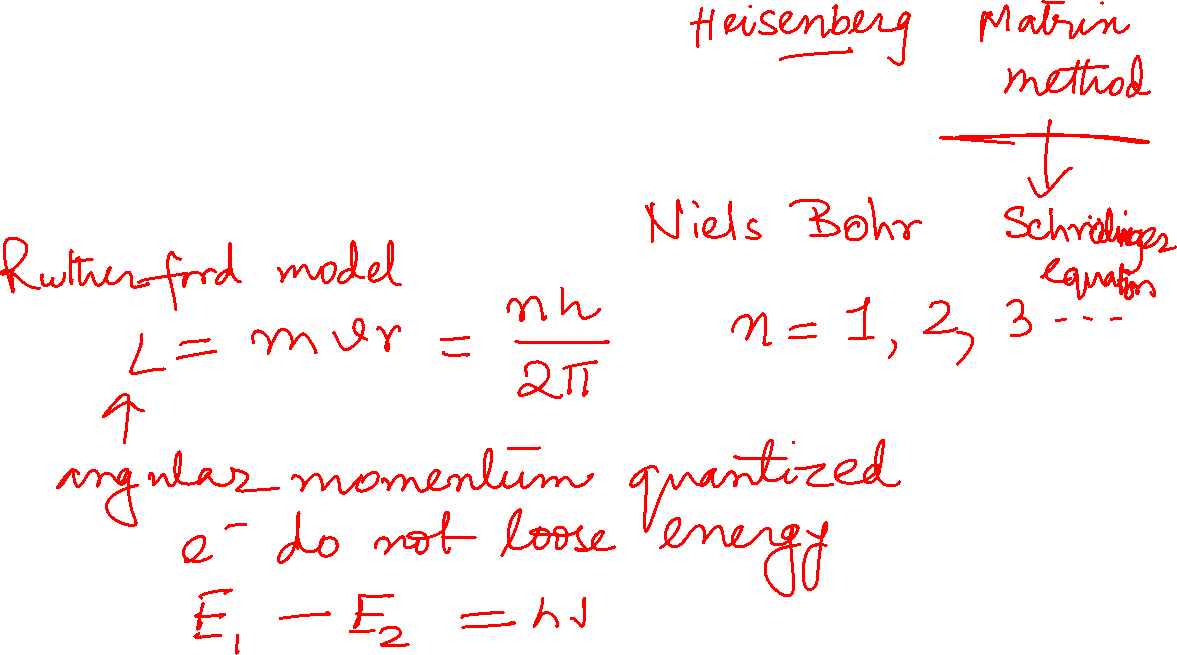 Heisenberg Matrix
method
Niels Bohr Schrödinger
equation
Rutherford model
L = mvr = nh/2π n = 1, 2, 3 ---
angular momentum quantized
e⁻ do not loose energy
E₁ - E₂ = hν